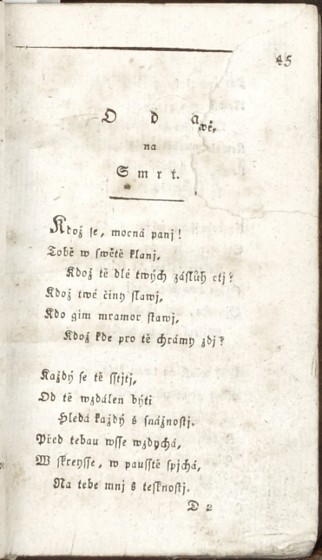 45
O d a
wě,
na
Smrt.
Kdož se, mocná panj!
Tobě w swětě klanj,
Kdož tě dlé twých záslůh ctj?
Kdož twé činy slawj,
Kdo gim mramor stawj,
Kdož kde pro tě chrámy zdj?
Každý se tě sstjtj,
Od tě wzdálen býti
Hledá každý s snážnostj.
Před tebau wsse wzdychá,
W skreysse, w pausstě spjchá,
Na tebe mnj s teskností.
D 2